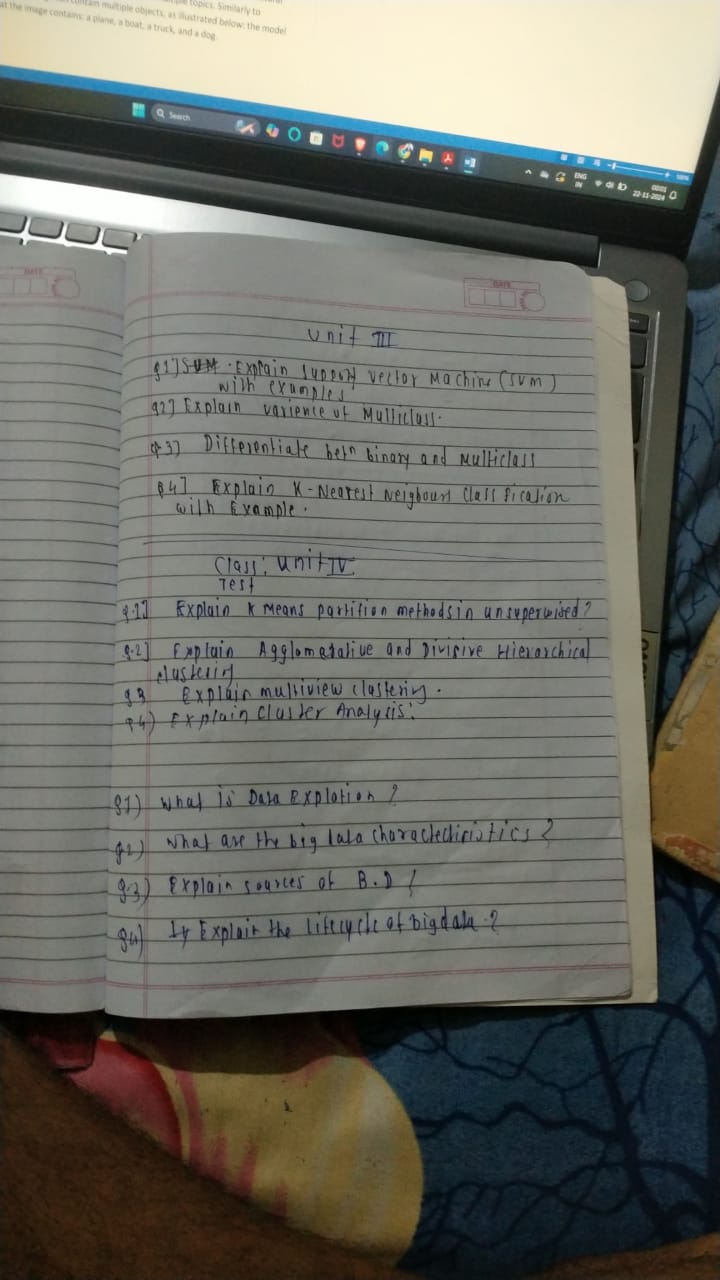 topics. Similarly to
contain multiple objects, as illustrated below: the model
at the image contains: a plane, a boat, a truck, and a dog.
Search
ENG
IN
00:01
22-11-2024
100%
DATE
DATE
Unit III
Q1] SUM. Explain Support Vector Machine (SVM)
with examples
Q2] Explain varience of Multiclass.
Q3] Differentiate betn binary and Multiclass
Q4] Explain K-Nearest Neighbours Classification
with Example.
Class: Unit IV
Test
Q.1] Explain K Means partition methods in unsuperwised?
Q.2] Explain Agglomatative and Divisive Hierarchical
clustering
Q3 Explain multiview clastering.
Q4) Explain Cluster Analysis:
Q1) What is Data Explotion?
Q2) What are the big data charactectiristics?
Q.3) Explain sources of B.D!
Q4) Explain the lifecycle of bigdata?